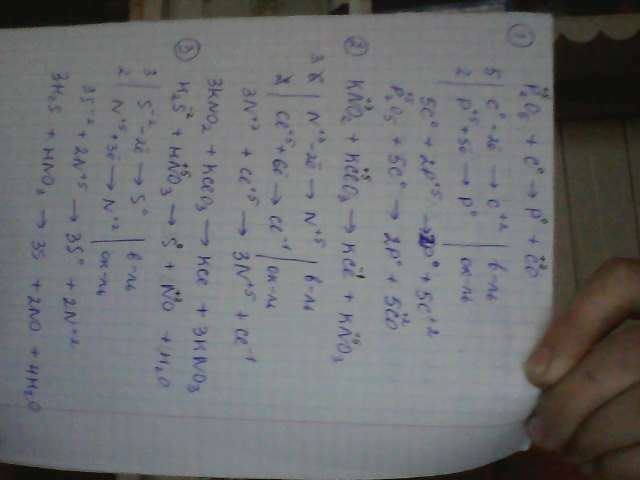 ① P₂⁺⁵O₅ + C⁰ → P⁰ + C⁺²O
5 | C⁰ - 2ē → C⁺² | в-ль
2 | P⁺⁵ + 5ē → P⁰ | ок-ль
5C⁰ + 2P⁺⁵ → 2P⁰ + 5C⁺²
P₂⁺⁵O₅ + 5C⁰ → 2P⁰ + 5C⁺²O
② KN⁺³O₂ + KCl⁺⁵O₃ → KCl⁻¹ + KN⁺⁵O₃
3 | N⁺³ - 2ē → N⁺⁵ | в-ль
Cl⁺⁵ + 6ē → Cl⁻¹ | ок-ль
3N⁺³ + Cl⁺⁵ → 3N⁺⁵ + Cl⁻¹
3KNO₂ + KClO₃ → KCl + 3KNO₃
③ H₂S⁻² + HN⁺⁵O₃ → S⁰ + N⁺²O + H₂O
3 | S⁻² - 2ē → S⁰ | в-ль
2 | N⁺⁵ + 3ē → N⁺² | ок-ль
3S⁻² + 2N⁺⁵ → 3S⁰ + 2N⁺²
3H₂S + HNO₃ → 3S + 2NO + 4H₂O